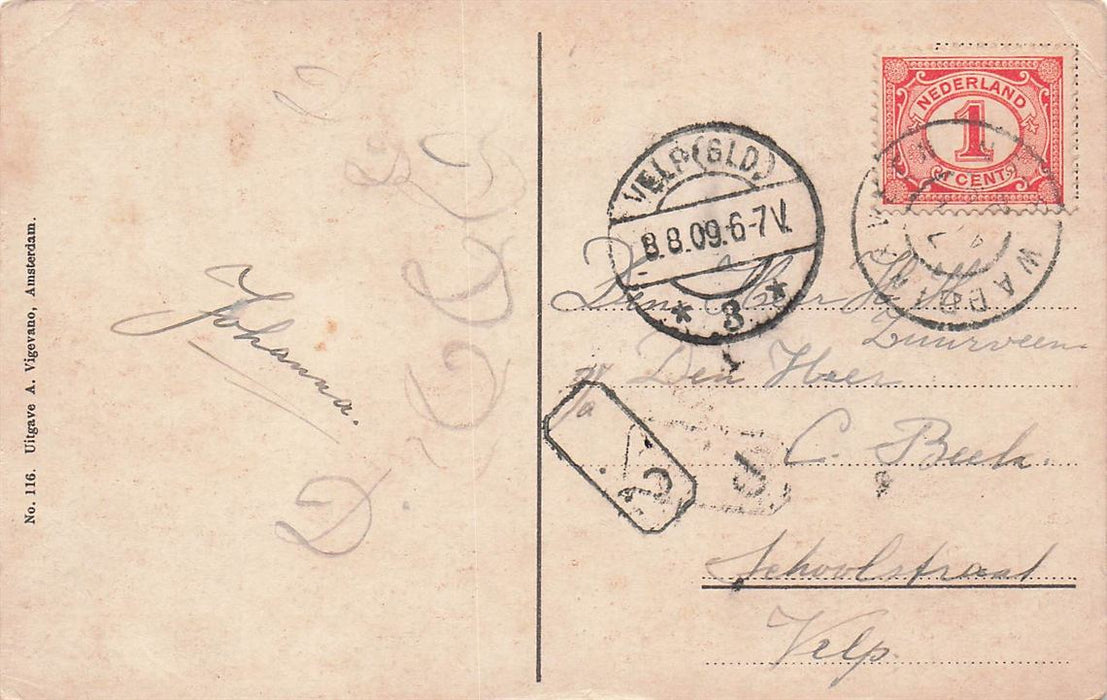 No. 116. Uitgave A. Vigevano, Amsterdam.
Johanna.
NEDERLAND
1
CENT
VELP (GLD.)
8.8.09.6-7V.
* 3 *
WADD
Den Heer H.
Zuurveen
Den Heer
p/a
C. Beek.
2
Schoolstraat
Velp.